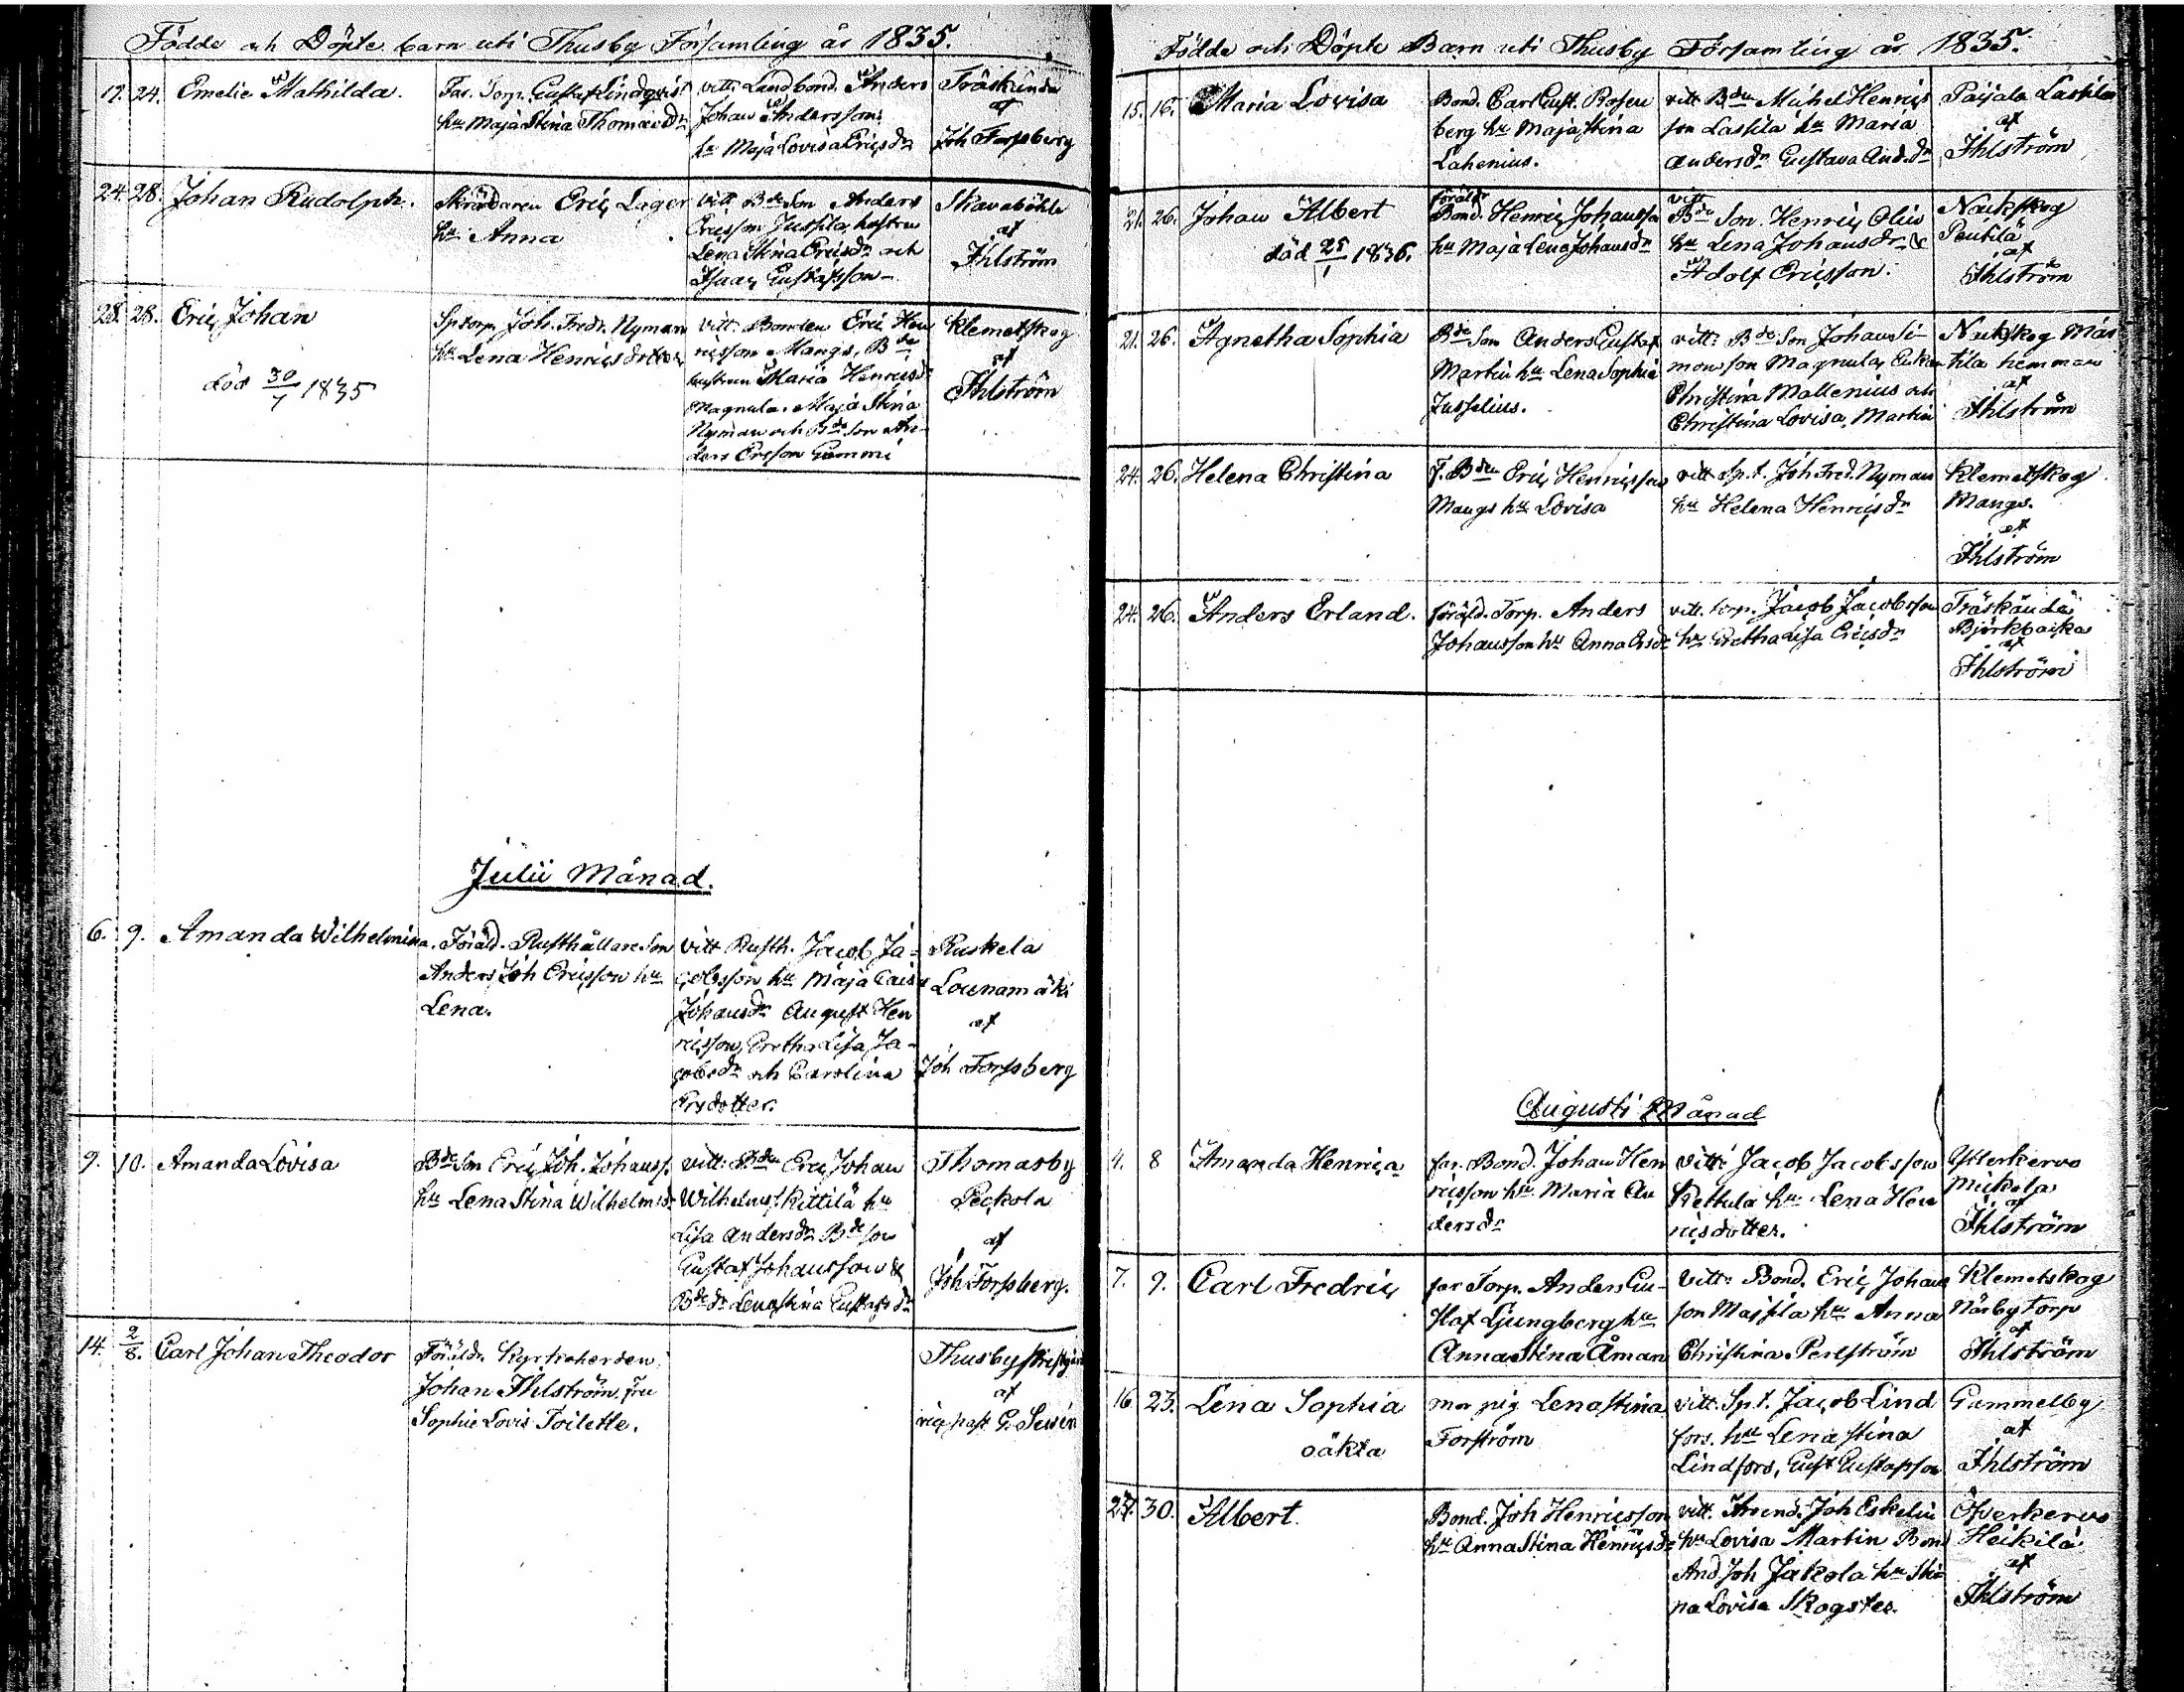 Födde och Döpte barn uti Thusby Församling år 1835.
17. 24. Emelie Mathilda.
Far. Torp. Gustaf Lindqvist
hu Maja Stina Thomasdr
vitt. Landbond. Anders
Johan Andersson
hu Maja Lovisa Ericsdr
Träskända
af
Joh Forssberg
24. 28. Johan Rudolph.
Skräddaren Eric Lager
hu Anna
vitt Bde Son Anders
Ericsson Jussila, hustru
Lena Stina Ericsdr och
Isaac Gustafsson
Skavaböhle
af
Ihlström
28. 28. Eric Johan
död 30/7 1835
Sptorp. Joh. Fredr. Nyman
hu Lena Henricsdotter
vitt: Bonden Eric Hen
ricsson Mangs, Bde
hustrun Maria Henricsdr
Magnula. Maja Stina
Nyman och Bde Son An
ders Ersson Gammi
Klemetskog
af
Ihlström
Julii Månad.
6. 9. Amanda Wilhelmina.
Föräld. Rusthållare Son
Anders Joh Ericsson hu
Lena.
vitt Rusth. Jacob Ja-
cobsson hu Maja Caisa
Johansdr August Hen
ricsson, Gretha Lisa Ja-
cobsdr och Carolina
Ersdotter.
Ruskela
Lounamäki
af
Joh Forssberg
9. 10. Amanda Lovisa
Bde Son Eric Joh. Johanss.
hu Lena Stina Wilhelmsdr
vitt: Bden Eric Johan
Wilhelmss. Kittilä hu
Lisa Andersdr Bde son
Gustaf Johansson &
Bde dr Lena Stina Gustafsdr
Thomasby
Peckola
af
Joh Forssberg.
14. 2/8. Carl Johan Theodor
Föräldr. Kyrkoherden
Johan Ihlström, fru
Sophie Lovis Toilette.
Thusby Prestgård
af
vice past G. Sevén
Födde och Döpte Barn uti Thusby Församling år 1835.
15. 16. Maria Lovisa
Bond. Carl Gust. Rosen
berg hu Maja Stina
Lahenius.
vitt Bden Michel Henrics
son Lassila hu Maria
Andersdr Gustava And.dr
Paijala Lassila
af
Ihlström
21. 26. Johan Albert
död 25/1 1836.
Föräldr
Bond. Henric Johansson
hu Maja Lena Johansdr
vitt
Bde Son. Henric Olin
hu Lena Johansdr &
Adolf Ericsson.
Nackskog
Pentilä
af
Ihlström
21. 26. Agnetha Sophia
Bde Son Anders Gustaf
Martin hu Lena Sophia
Jusselius.
vitt: Bde Son Johan Si-
monsson Magnula, Enkan
Christina Mallenius och
Christina Lovisa Martin
Nackskog Mar
tila hemman
af
Ihlström
24. 26. Helena Christina
F. Bden Eric Henricsson
Mangs hu Lovisa
vitt Sp.t. Joh Fred. Nyman
hu Helena Henricsdr
Klemetskog
Mangs.
af
Ihlström
24. 26. Anders Erland.
föräld. Torp. Anders
Johansson hu Anna Ersdr
vitt. torp. Jacob Jacobsson
hu Gretha Lisa Ericsdr
Träskända
Björkbacka
af
Ihlström
Augusti Månad
4. 8 Amanda Henrica
far. Bond. Johan Hen
ricsson hu. Maria An
dersdr
Vitt: Jacob Jacobsson
Kettula hu. Lena Hen
ricsdotter.
Ytterkervo
Mickola
af
Ihlström
7. 9. Carl Fredric
far Torp. Anders Gu-
staf Ljungberg hu
Anna Stina Åman
Vitt: Bond. Eric Johan
son Majsila hu Anna
Christina Perlström
Klemetskog
Närby torp
af
Ihlström
16 23. Lena Sophia
oäkta
mor pig. Lena Stina
Forström
vitt. Sp.t. Jacob Lind
fors. hu Lena Stina
Lindfors, Gust Gustafson
Gammelby
af
Ihlström
27. 30. Albert.
Bond. Joh Henricsson
hu Anna Stina Henricsdr
vitt. Arend. Joh Eskelin
hu Lovisa Martin Bond
And Joh Jakola hu Sti
na Lovisa Skogster.
Öfverkervo
Heikilä
af
Ihlström